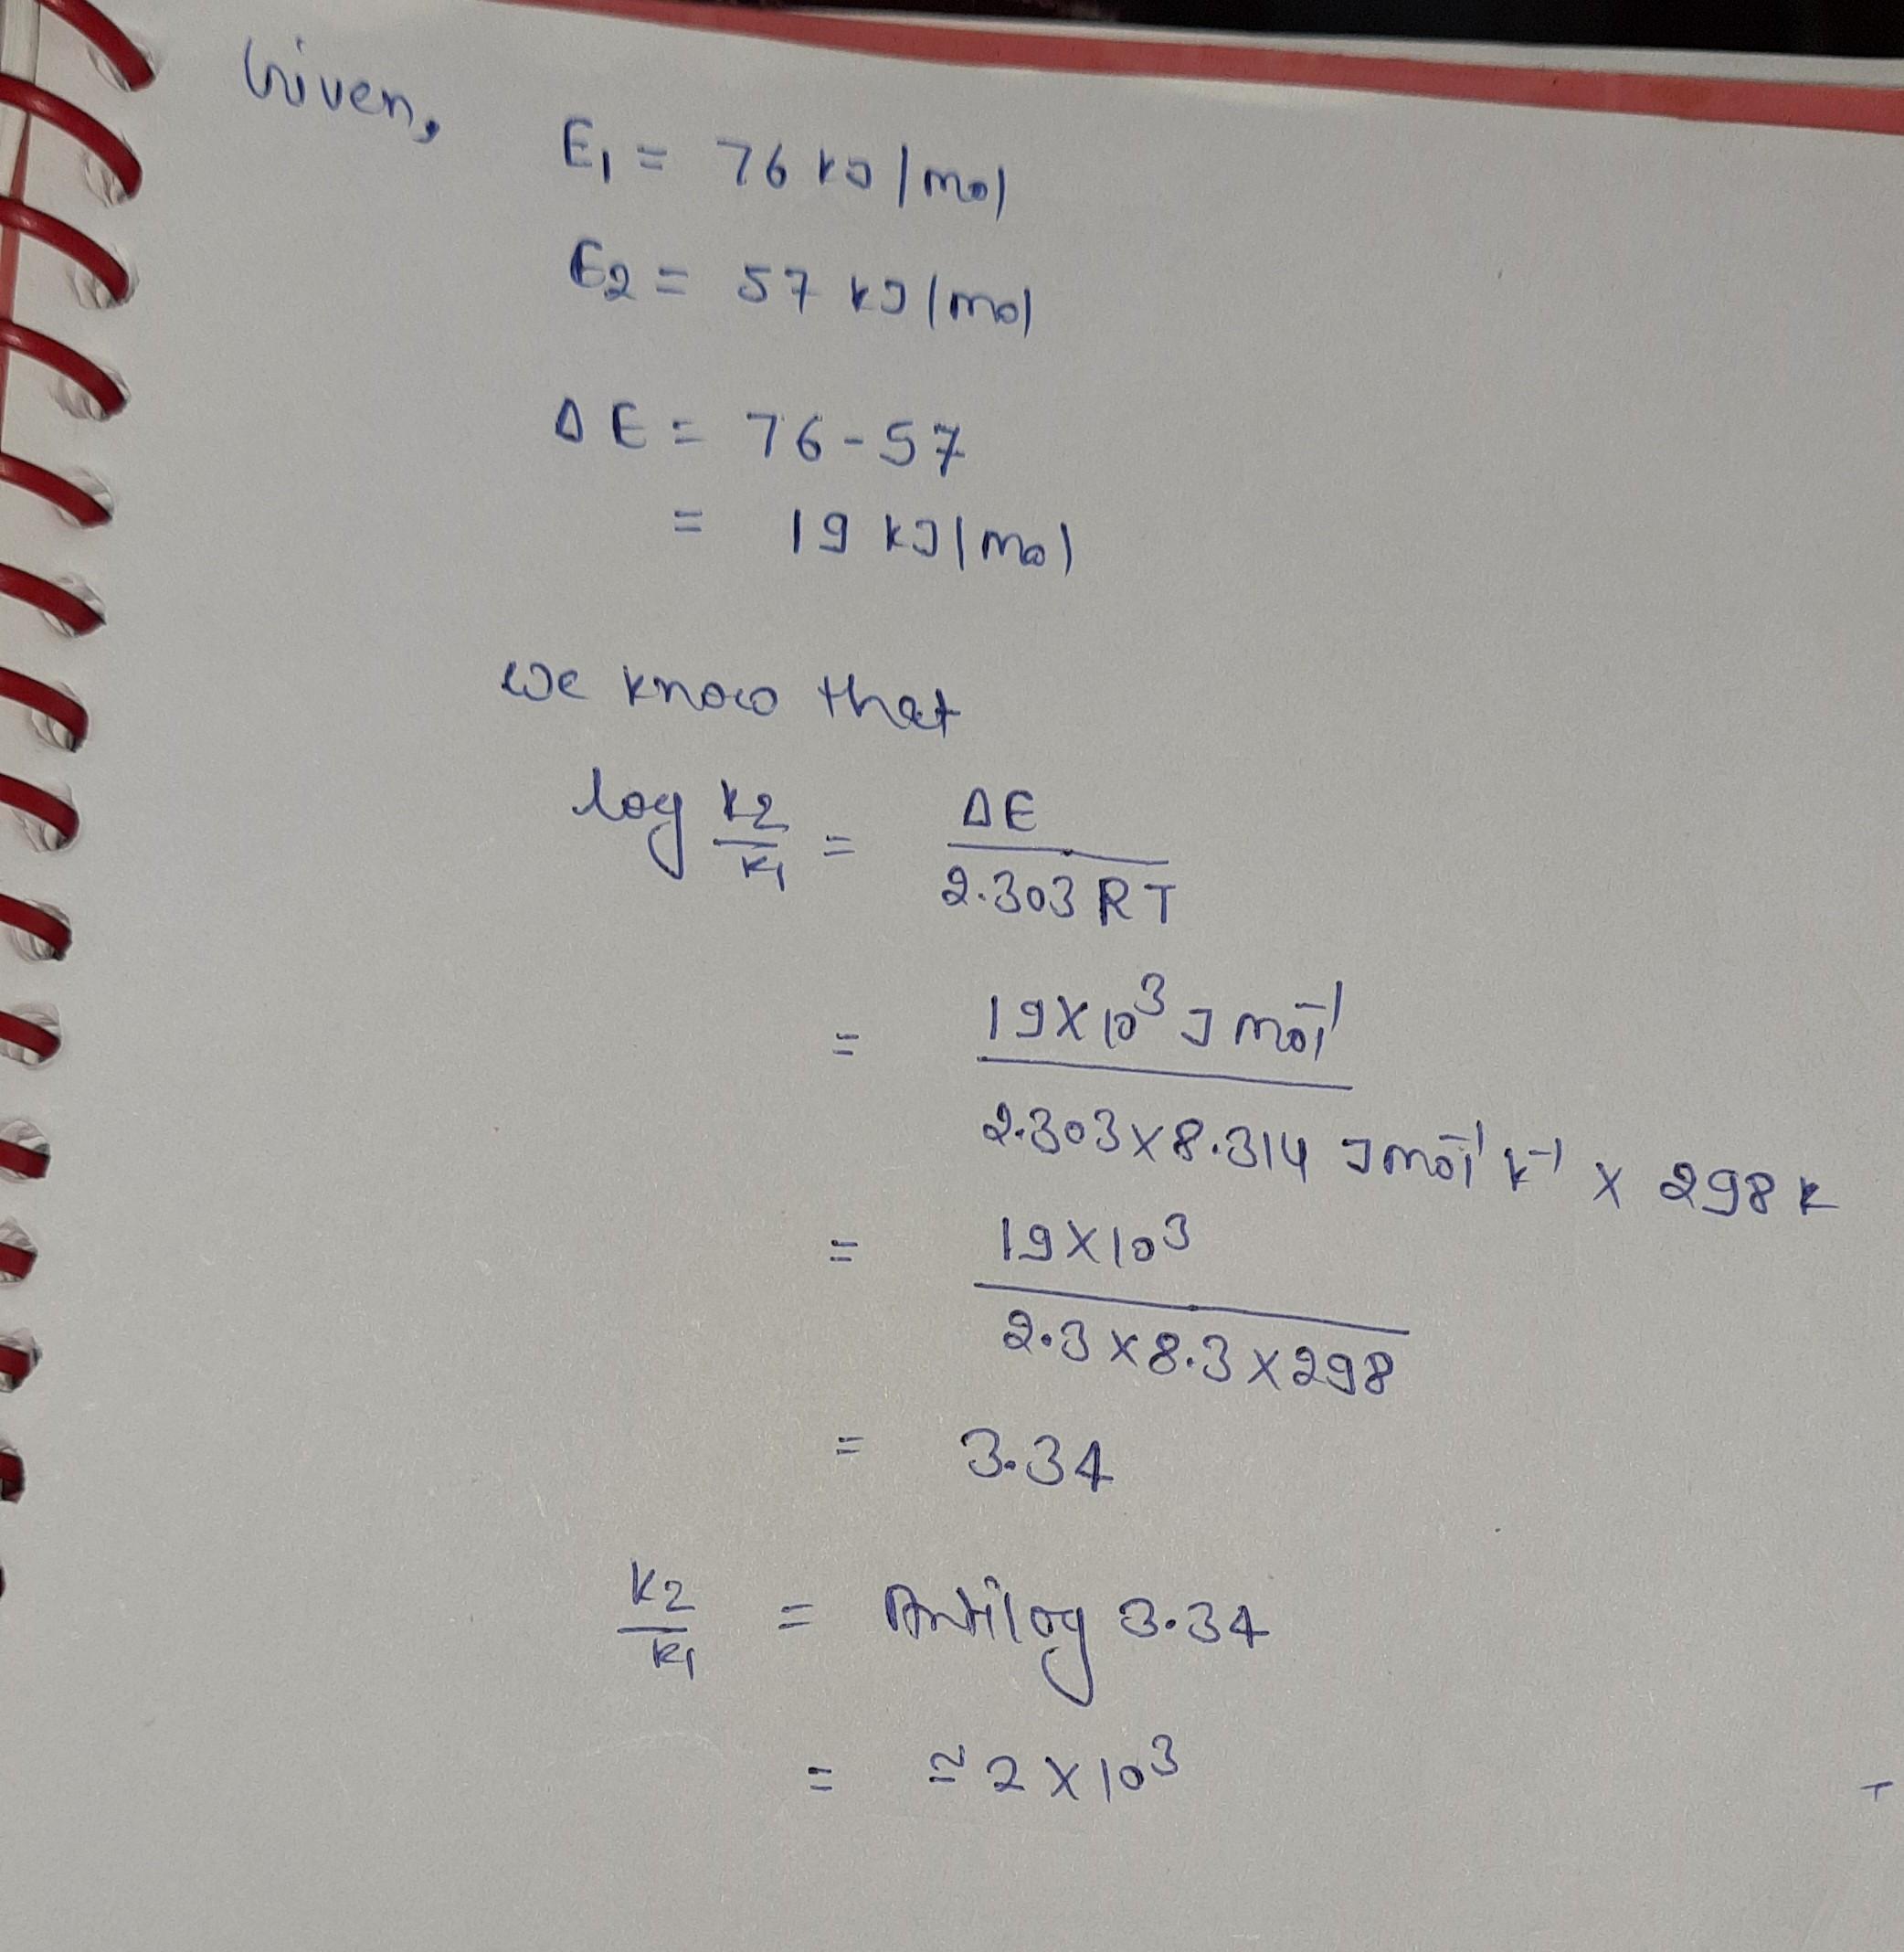 Given,
E₁ = 76 kJ/mol
E2 = 57 kJ/mol
ΔE = 76-57
= 19 kJ/mol
we know that
log k2/k1 = ΔE/2.303 RT
= 19×10³ J mol⁻¹/2.303×8.314 J mol⁻¹ k⁻¹ × 298 k
= 19×10³/2.3×8.3×298
= 3.34
k2/k1 = Antilog 3.34
= ≃ 2×10³